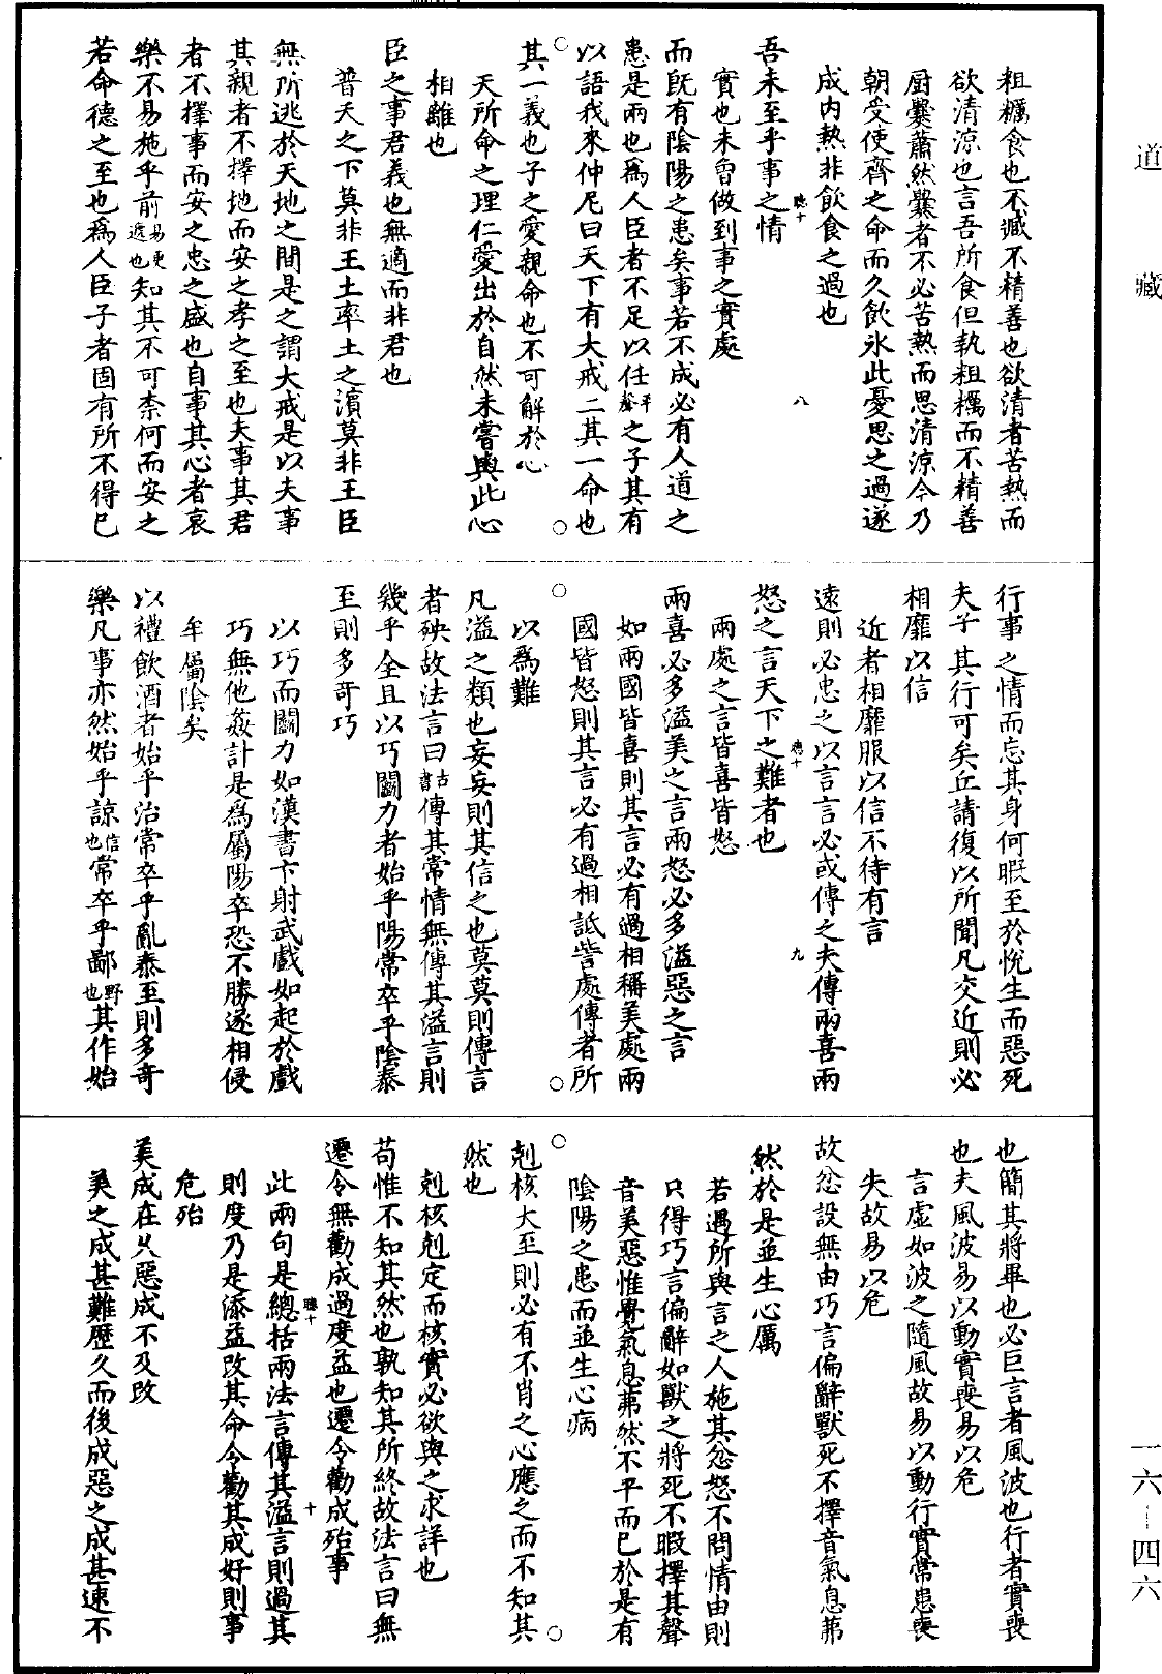 道藏
粗糲食也不臧不精善也欲清者苦熱而
欲清涼也言吾所食但執粗糲而不精善
厨爨蕭然爨者不必苦熱而思清涼今乃
朝受使齊之命而夕飲氷此憂思之過遂
成内熱非飲食之過也
吾未至乎事之情
聽十
八
實也未曾做到事之實處
而既有陰陽之患矣事若不成必有人道之
患是兩也爲人臣者不足以任平聲之子其有
以語我來仲尼曰天下有大戒二其一命也
其一義也子之愛親命也不可解於心
天所命之理仁愛出於自然未嘗與此心
相離也
臣之事君義也無適而非君也
普天之下莫非王土率土之濵莫非王臣
無所逃於天地之間是之謂大戒是以夫事
其親者不擇地而安之孝之至也夫事其君
者不擇事而安之忠之盛也自事其心者哀
樂不易施乎前易更遞也知其不可柰何而安之
若命德之至也爲人臣子者固有所不得已
行事之情而忘其身何暇至於悅生而惡死
夫子其行可矣丘請復以所聞凡交近則必
相靡以信
近者相靡服以信不待有言
遠則必忠之以言言必或傳之夫傳兩喜兩
怒之言天下之難者也
聽十
九
兩處之言皆喜皆怒
兩喜必多溢美之言兩怒必多溢惡之言
如兩國皆喜則其言必有過相稱美處兩
國皆怒則其言必有過相詆訾處傳者所
以爲難
凡溢之類也妄妄則其信之也莫莫則傳言
者殃故法言曰古書傳其常情無傳其溢言則
幾乎全且以巧鬭力者始乎陽常卒乎陰泰
至則多竒巧
以巧而鬭力如漢書卞射武戲如起於戲
巧無他姦計是爲屬陽卒恐不勝遂相侵
牟屬陰矣
以禮飲酒者始乎治常卒乎亂泰至則多竒
樂凡事亦然始乎諒信也常卒乎鄙野也其作始
也簡其將畢也必巨言者風波也行者實喪
也夫風波易以動實喪易以危
言虚如波之隨風故易以動行實常患喪
失故易以危
故忿設無由巧言偏辭獸死不擇音氣息茀
然於是並生心厲
若遇所與言之人施其忿怒不問情由則
只得巧言偏辭如獸之將死不暇擇其聲
音美惡惟覺氣息茀然不平而已於是有
陰陽之患而並生心病
剋核大至則必有不肖之心應之而不知其
然也
剋核剋定而核實必欲與之求詳也
苟惟不知其然也孰知其所終故法言曰無
遷令無勸成過度益也遷令勸成殆事
聽十
十
此兩句是總括兩法言傳其溢言則過其
則度乃是添益改其命令勸其成好則事
危殆
美成在久惡成不及改
美之成甚難歷久而後成惡之成甚速不
一六—四六